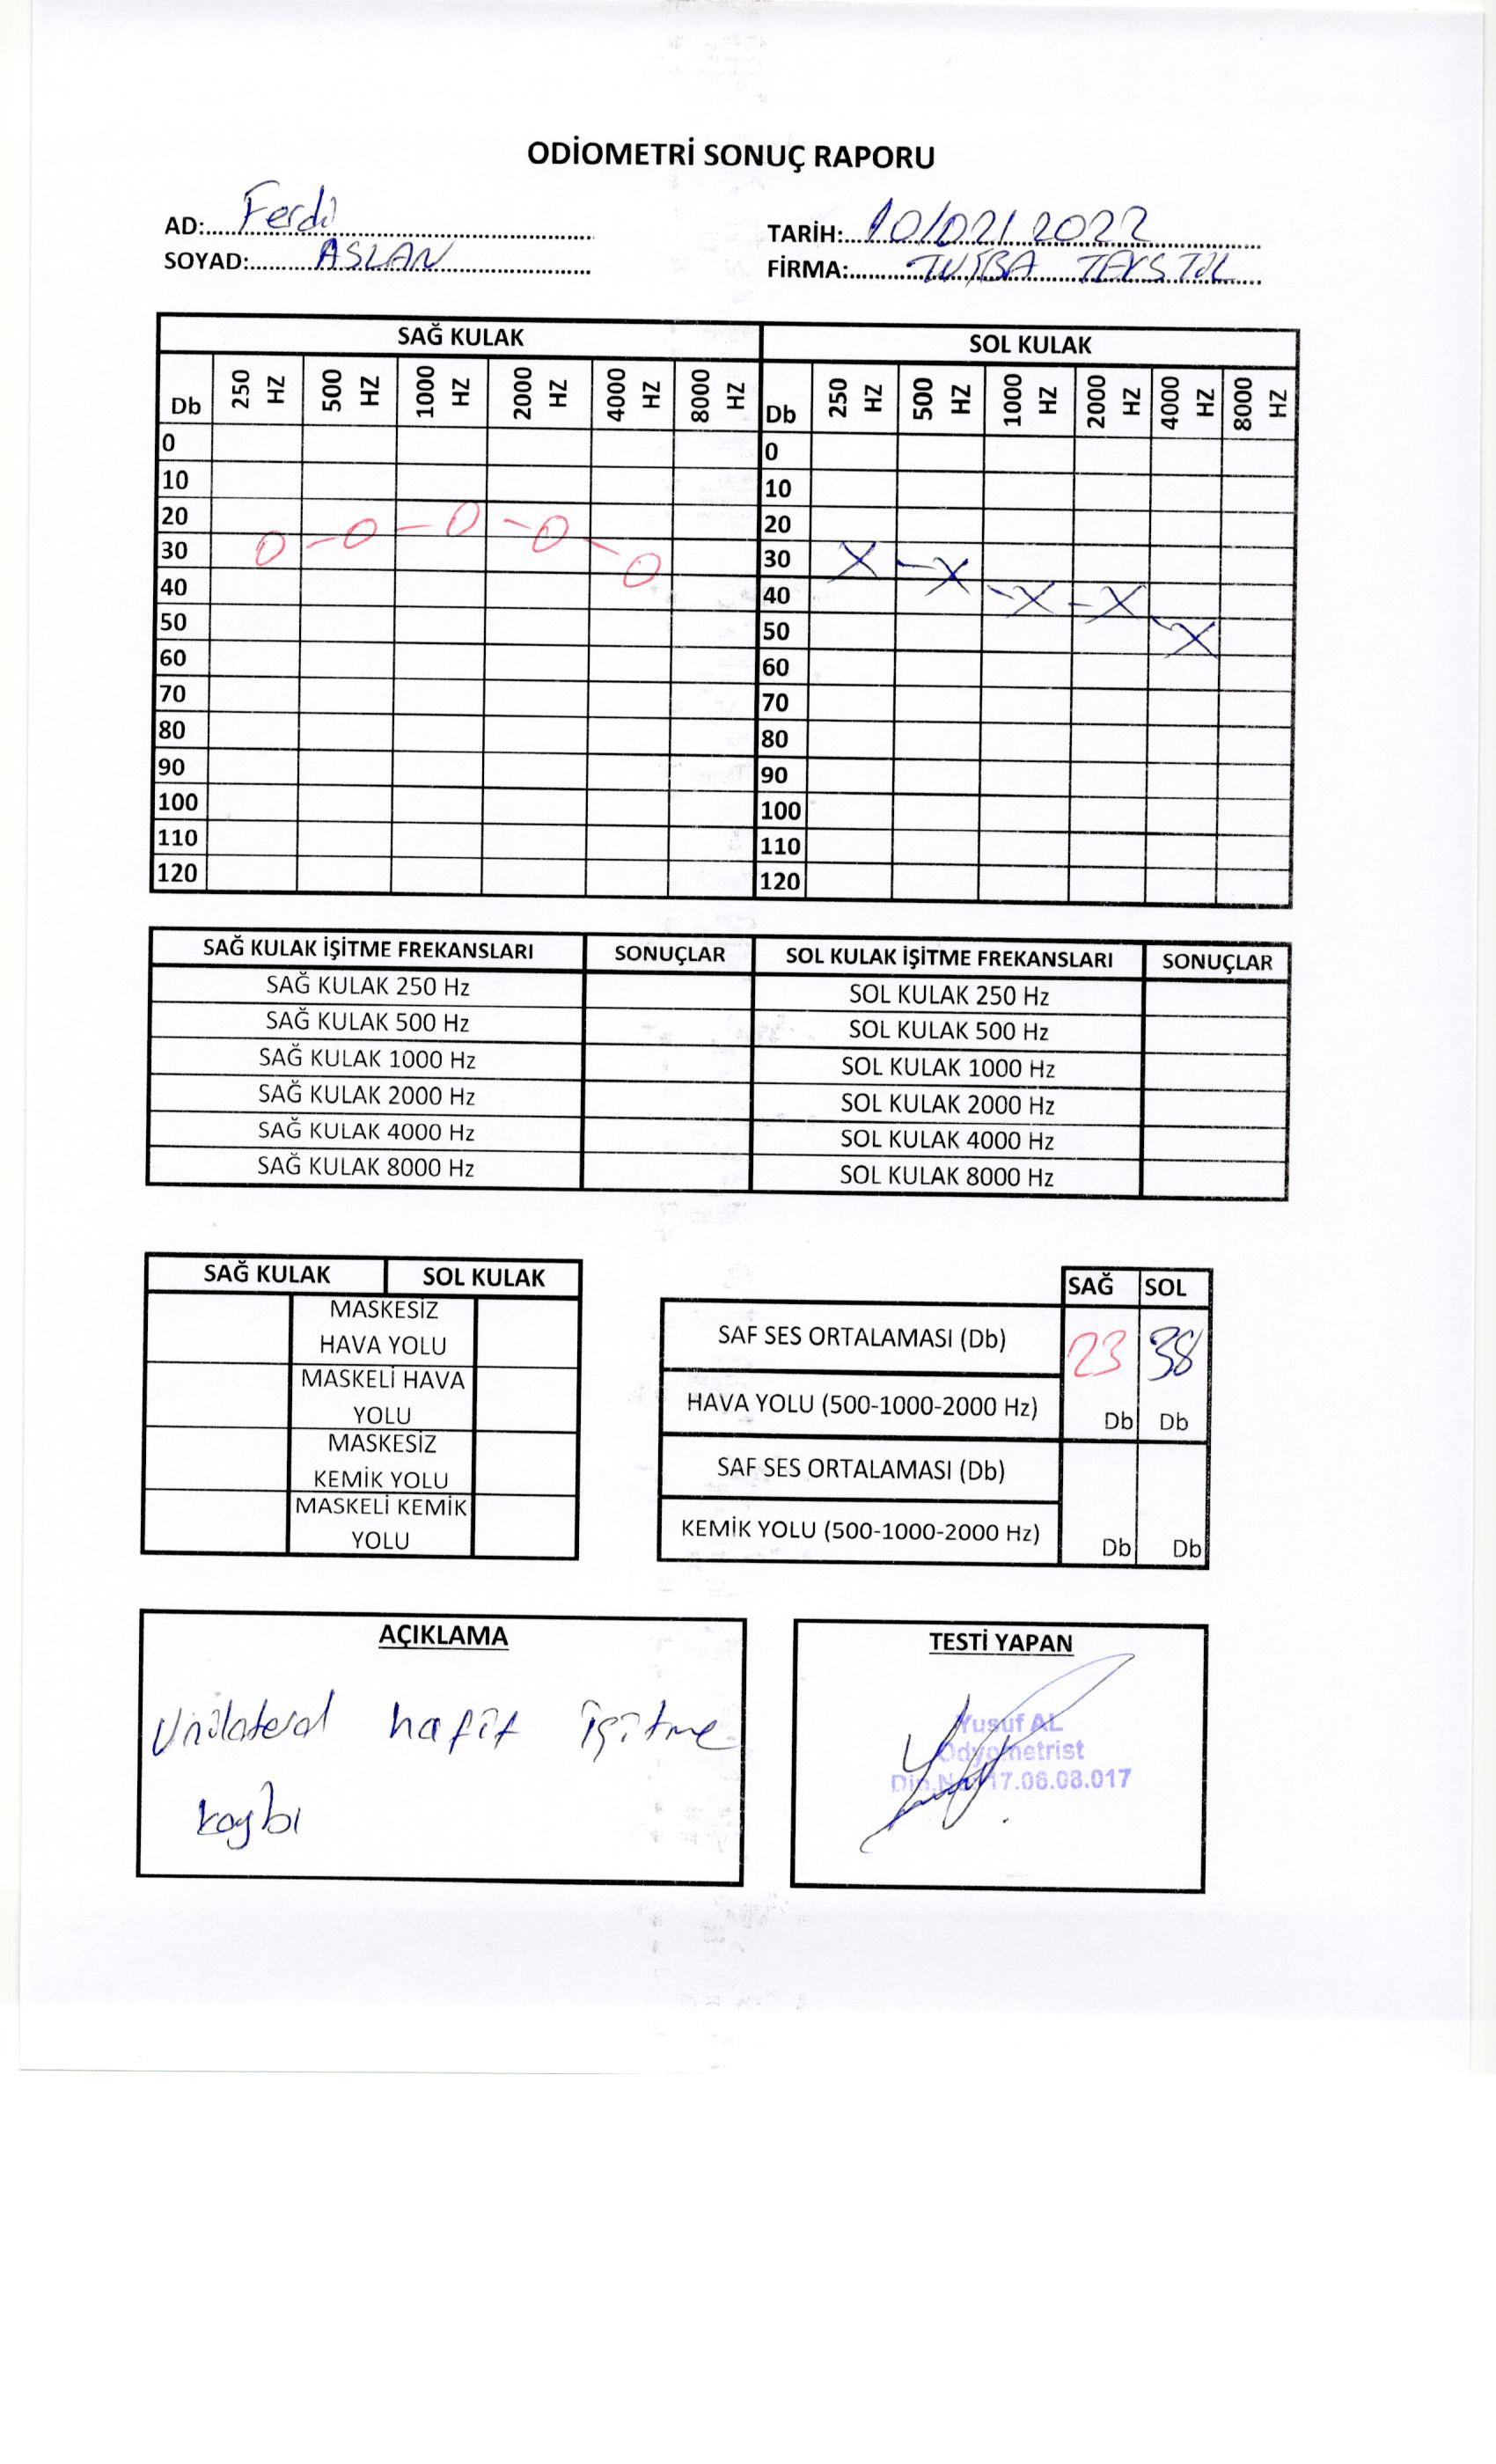 ODİOMETRİ SONUÇ RAPORU
AD: Ferdi
SOYAD: ASLAN
TARİH: 10/02/2022
FİRMA: TUĞBA TEKSTİL
SAĞ KULAK SOL KULAK
Db 250 HZ 500 HZ 1000 HZ 2000 HZ 4000 HZ 8000 HZ Db 250 HZ 500 HZ 1000 HZ 2000 HZ 4000 HZ 8000 HZ
0 0
10 10
20 20
30 30
40 40
50 50
60 60
70 70
80 80
90 90
100 100
110 110
120 120
SAĞ KULAK İŞİTME FREKANSLARI SONUÇLAR SOL KULAK İŞİTME FREKANSLARI SONUÇLAR
SAĞ KULAK 250 Hz SOL KULAK 250 Hz
SAĞ KULAK 500 Hz SOL KULAK 500 Hz
SAĞ KULAK 1000 Hz SOL KULAK 1000 Hz
SAĞ KULAK 2000 Hz SOL KULAK 2000 Hz
SAĞ KULAK 4000 Hz SOL KULAK 4000 Hz
SAĞ KULAK 8000 Hz SOL KULAK 8000 Hz
SAĞ KULAK SOL KULAK
MASKESİZ
HAVA YOLU
MASKELİ HAVA
YOLU
MASKESİZ
KEMİK YOLU
MASKELİ KEMİK
YOLU
SAĞ SOL
SAF SES ORTALAMASI (Db) 23 38
HAVA YOLU (500-1000-2000 Hz) Db Db
SAF SES ORTALAMASI (Db)
KEMİK YOLU (500-1000-2000 Hz) Db Db
AÇIKLAMA
Unilateral hafif işitme
kaybı
TESTİ YAPAN
Yusuf AL
Odyometrist
Dip.No: 17.06.08.017